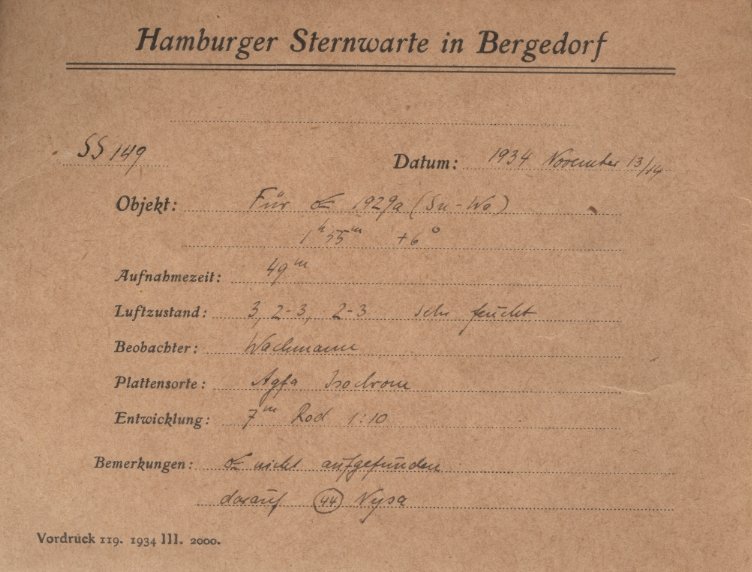 Hamburger Sternwarte in Bergedorf
SS 149
Datum: 1934 November 13/14
Objekt: Für ☄ 1929a (Su-Wa)
1ʰ 55ᵐ +6°
Aufnahmezeit: 49ᵐ
Luftzustand: 3, 2-3, 2-3 sehr feucht
Beobachter: Wachmann
Plattensorte: Agfa Isochrom
Entwicklung: 7ᵐ Rod 1:10
Bemerkungen: ☄ nicht aufgefunden
darauf (44) Nysa
Vordruck 119. 1934 III. 2000.